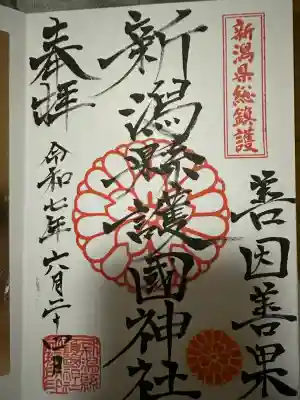 新潟県総鎮護
善因善果
新潟縣護國神社
奉拝
令和七年六月二十四日